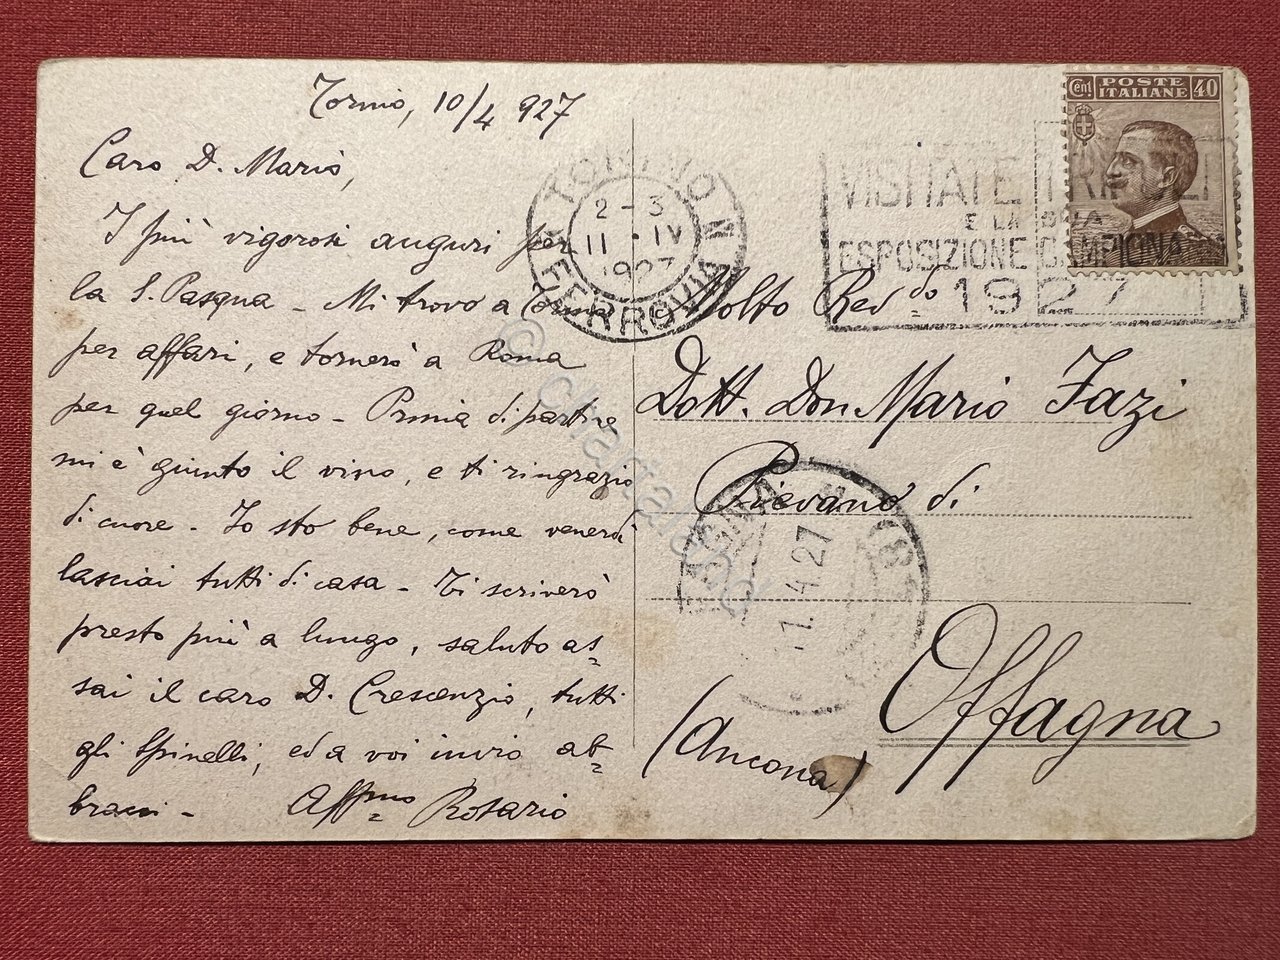 Torino, 10/4 927
Caro D. Mario,
I più vigorosi auguri per
la S. Pasqua - Mi trovo a Torino
per affari, e tornerò a Roma
per quel giorno - Prima di partire
mi è giunto il vino, e ti ringrazio
di cuore - Io sto bene, come venerdì
lasciai tutti di casa - Ti scriverò
presto più a lungo, saluto as-
sai il caro D. Crescenzio, tutti
gli Spinelli, ed a voi invio ab-
bracci - Affmo Rosario
TORINO
FERROVIA N
2-3
11·IV
1927
VISITATE TRIPOLI
E LA SUA
ESPOSIZIONE CAMPIONARIA
1927
Cent POSTE ITALIANE 40
Molto Rev.do
Dott. Don Mario Fazi
Pievano di
Offagna
(Ancona)
4.27
© chartaland